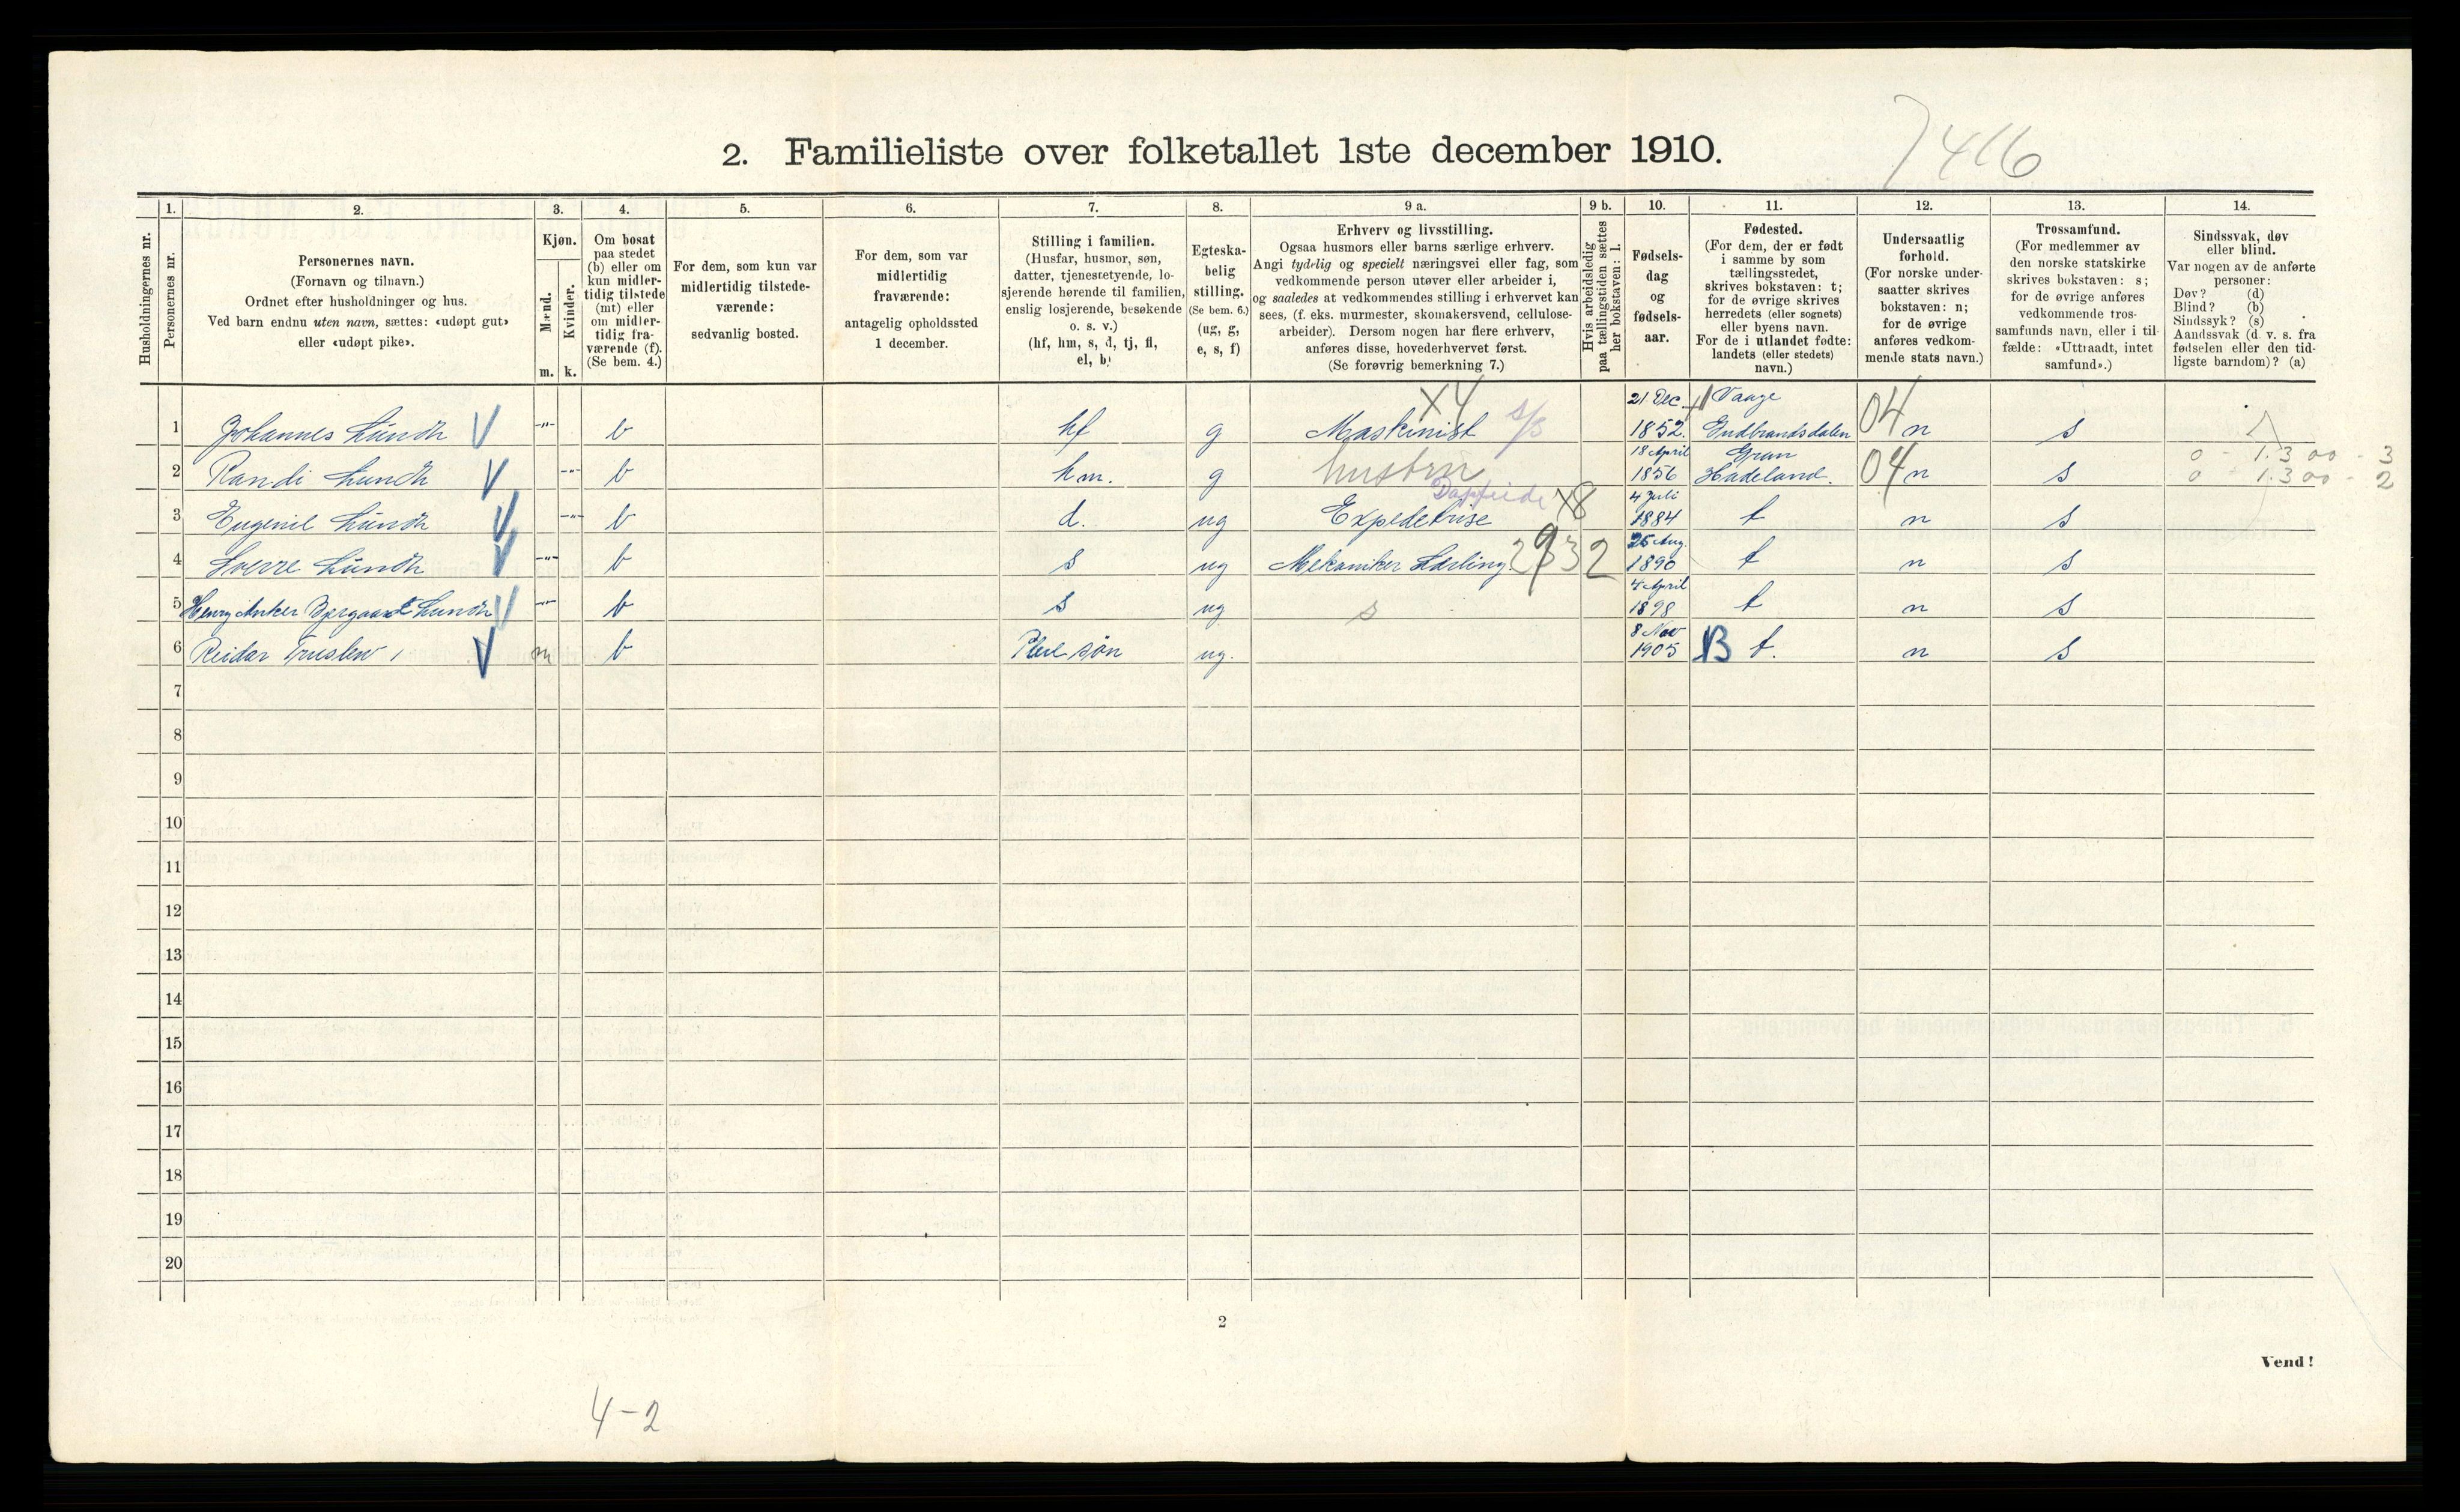 7416
2. Familieliste over folketallet 1ste december 1910.
Husholdningernes nr.
1.
Personernes nr.
2.
Personernes navn.
(Fornavn og tilnavn.)
Ordnet efter husholdninger og hus.
Ved barn endnu uten navn, sættes: «udøpt gut»
eller «udøpt pike».
3.
Kjøn.
Mænd.
Kvinder.
m. k.
4.
Om bosat
paa stedet
(b) eller om
kun midler-
tidig tilstede
(mt) eller
om midler-
tidig fra-
værende (f).
(Se bem. 4.)
5.
For dem, som kun var
midlertidig tilstede-
værende:
sedvanlig bosted.
6.
For dem, som var
midlertidig
fraværende:
antagelig opholdssted
1 december.
7.
Stilling i familien.
(Husfar, husmor, søn,
datter, tjenestetyende, lo-
sjerende hørende til familien,
enslig losjerende, besøkende
o. s. v.)
(hf, hm, s, d, tj, fl,
el, b)
8.
Egteska-
belig
stilling.
(Se bem. 6.)
(ug, g,
e, s, f)
9 a.
Erhverv og livsstilling.
Ogsaa husmors eller barns særlige erhverv.
Angi tydelig og specielt næringsvei eller fag, som
vedkommende person utøver eller arbeider i,
og saaledes at vedkommendes stilling i erhvervet kan
sees, (f. eks. murmester, skomakersvend, cellulose-
arbeider). Dersom nogen har flere erhverv,
anføres disse, hovederhvervet først.
(Se forøvrig bemerkning 7.)
9 b.
Hvis arbeidsledig
paa tællingstiden sættes
her bokstaven: l.
10.
Fødsels-
dag
og
fødsels-
aar.
11.
Fødested.
(For dem, der er født
i samme by som
tællingsstedet,
skrives bokstaven: t;
for de øvrige skrives
herredets (eller sognets)
eller byens navn.
For de i utlandet fødte:
landets (eller stedets)
navn.)
12.
Undersaatlig
forhold.
(For norske under-
saatter skrives
bokstaven: n;
for de øvrige
anføres vedkom-
mende stats navn.)
13.
Trossamfund.
(For medlemmer av
den norske statskirke
skrives bokstaven: s;
for de øvrige anføres
vedkommende tros-
samfunds navn, eller i til-
fælde: «Uttraadt, intet
samfund».)
14.
Sindssvak, døv
eller blind.
Var nogen av de anførte
personer:
Døv? (d)
Blind? (b)
Sindssyk? (s)
Aandssvak (d. v. s. fra
fødselen eller den tid-
ligste barndom)? (a)
1 Johannes Lundh V -"- b hf g Maskinist X4 21 Dec 1852. Vaage Gudbrandsdalen 04 n s
2 Randi Lundh V -"- b hm. g hustru 18 April 1856 Gran Hadeland. 04 n s 0 - 1.300 - 3
0 - 1.300 - 2
3 Eugenie Lundh V -"- b d. ug Expeditrise X8 4 Juli 1884 t n s
4 Sverre Lundh V -"- b s ug Mekaniker Lærling 25 Aug. 1890 t n s
5 Henry Anker Bjergaard Lundh V -"- b s ug s 4 April 1898 t n s
6 Reidar Truslew V m b Pleie søn ug. 8 Nov 1905 B t. n s
7
8
9
10
11
12
13
14
15
16
17
18
19
20
2
Vend!
4-2